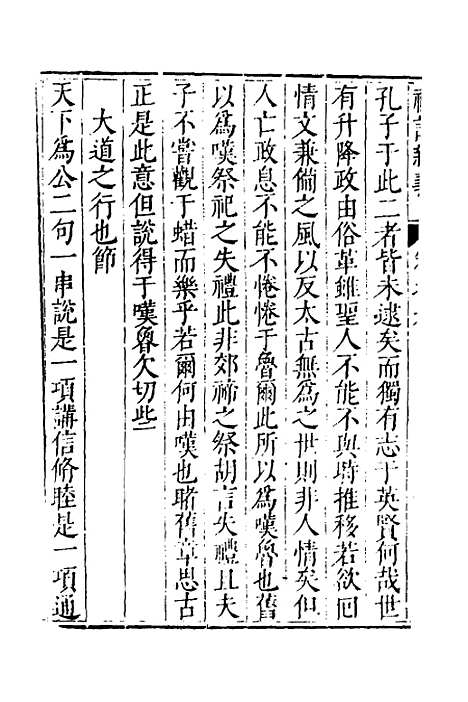 孔子于此二者皆未逮矣而獨有志于英賢何哉世
有升降政由俗革雖聖人不能不與時推移若欲囘
情文兼僃之風以反太古無爲之世則非人情矣但
人亡政息不能不惓惓于魯爾此所以爲嘆魯也舊
以爲嘆祭祀之失禮此非郊禘之祭胡言失禮且夫
子不嘗觀于蜡而樂乎若爾何由嘆也睹舊章思古
正是此意但說得于嘆魯欠切些
大道之行也節
天下爲公二句一串說是一項講信脩睦是一項通